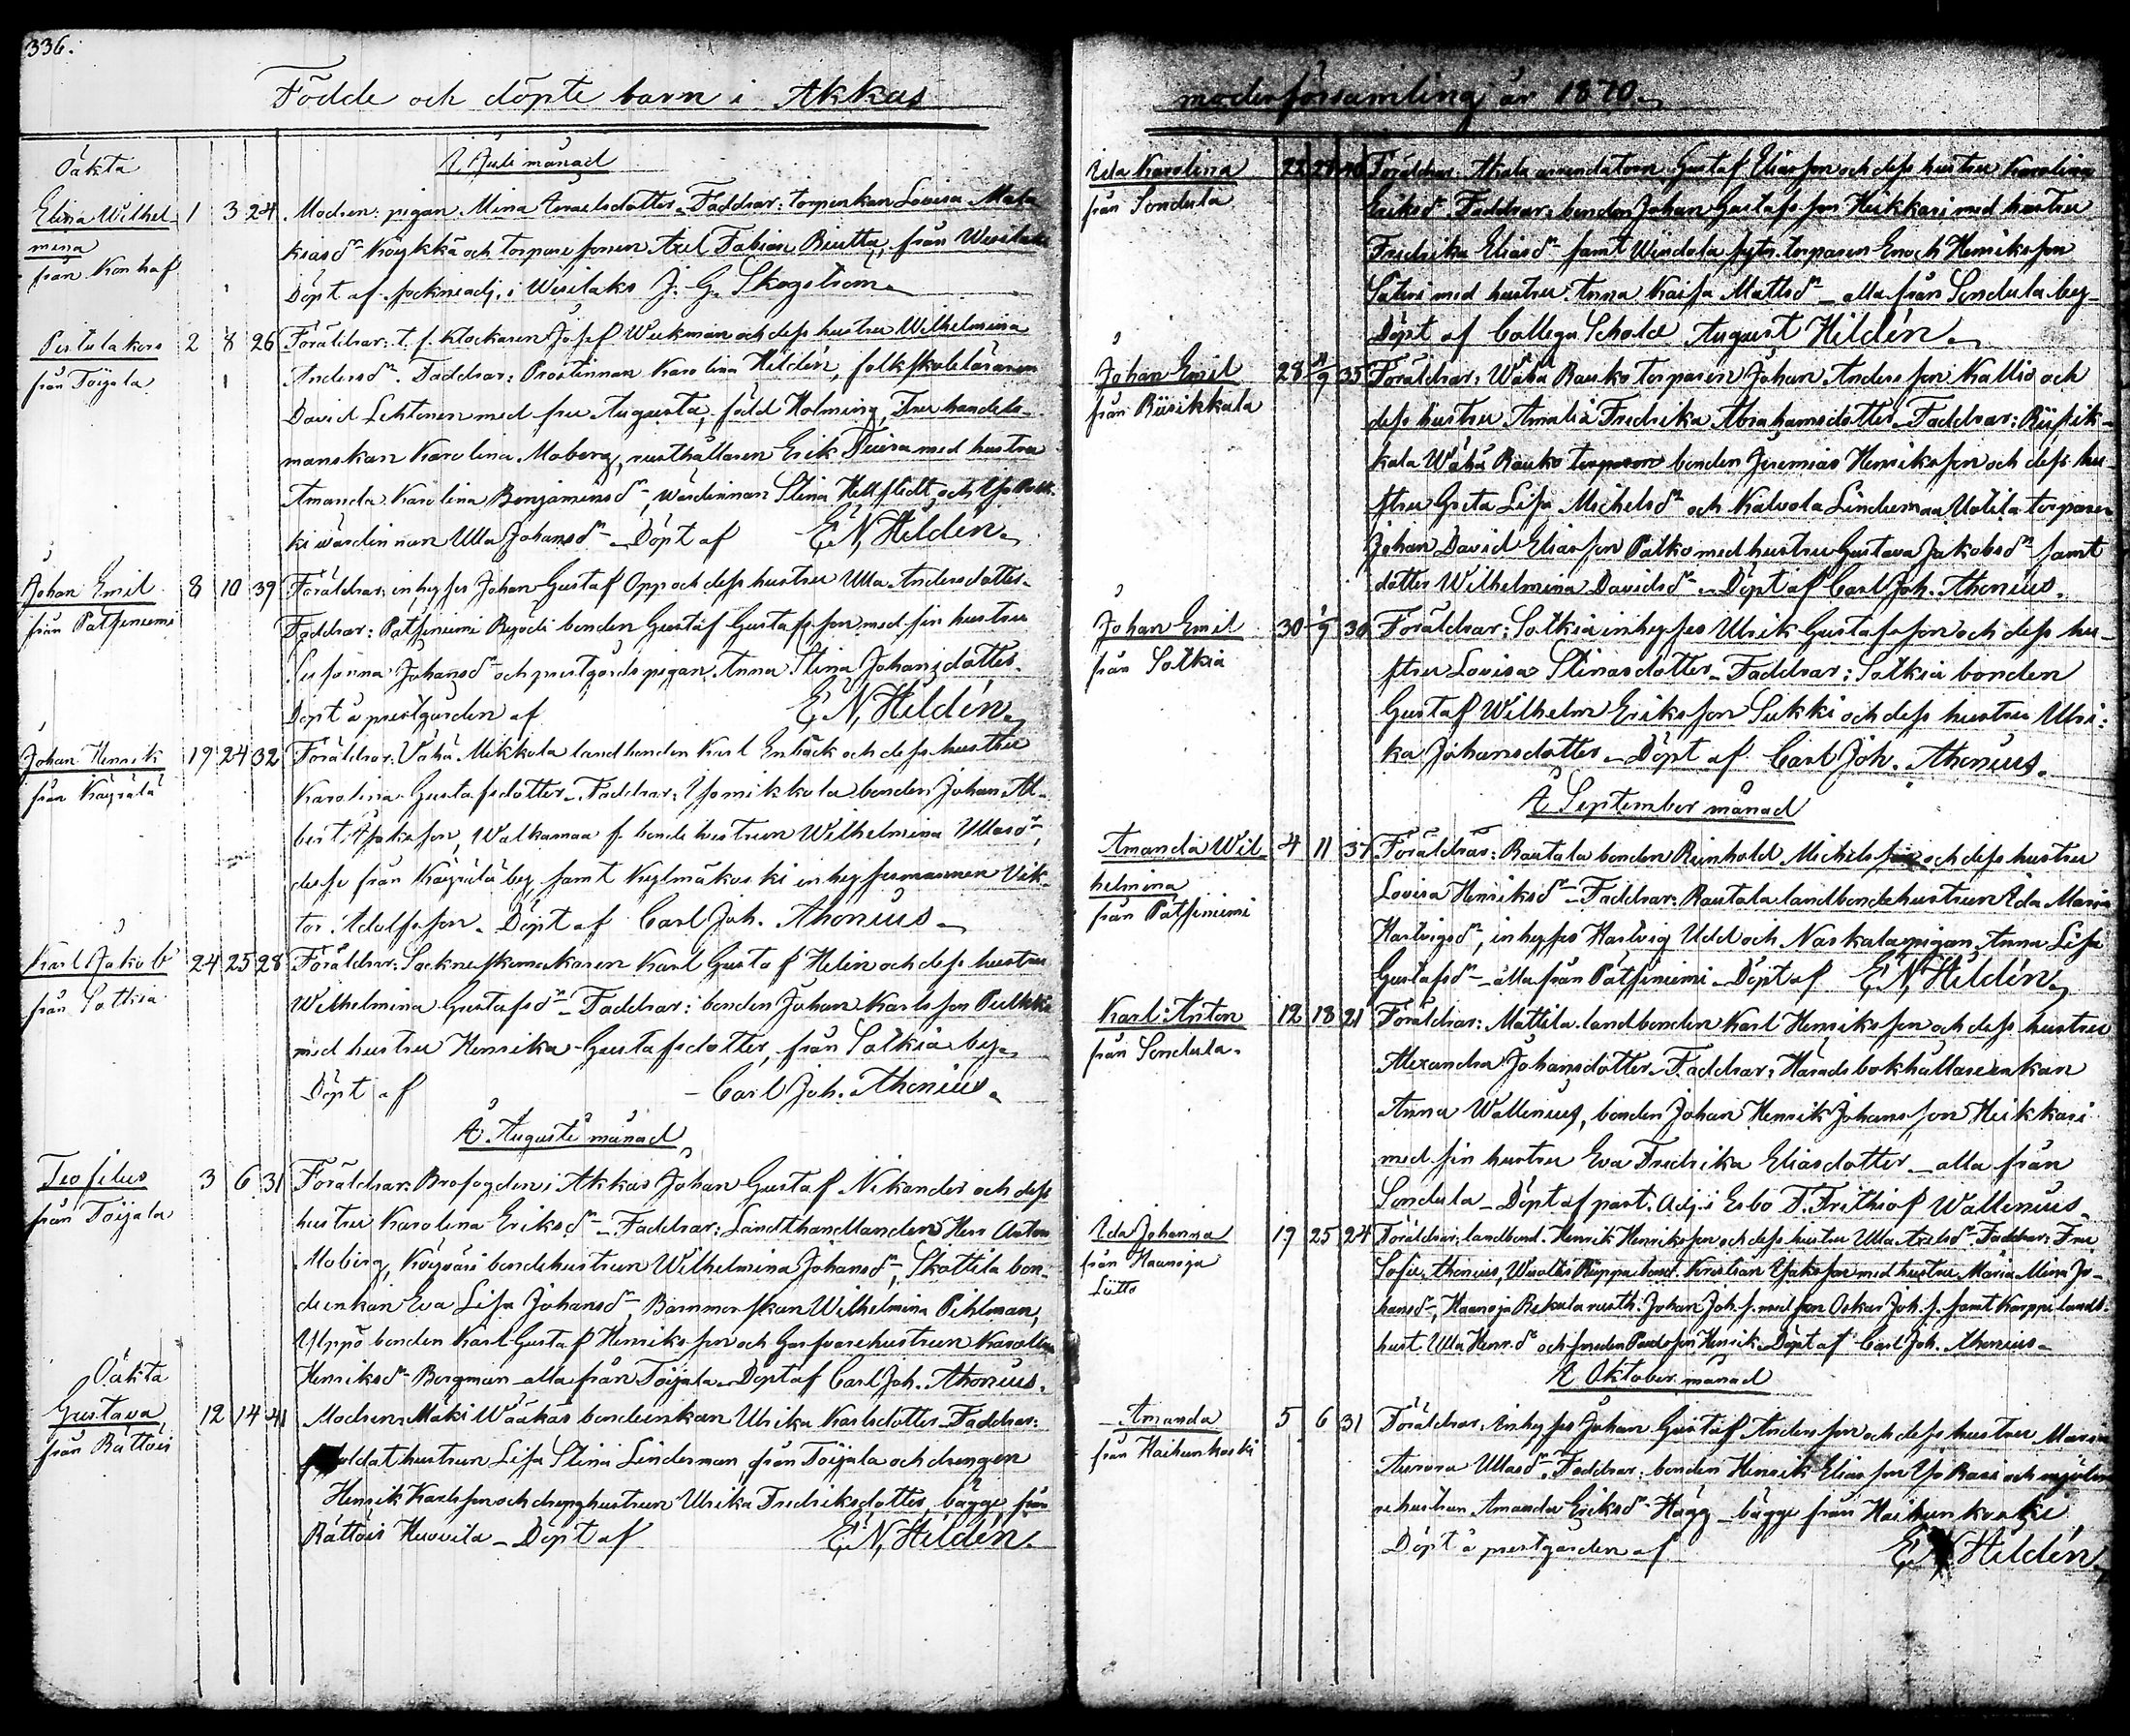 336.
Födde och döpte barn i Akkas
I Juli månad
Oäkta
Elina Wilhel-
mina
från Konhof
1 3 24
Modren: pigan Mina Israelsdotter. Faddrar: torpenkan Lovisa
Köykkä och torparesonen Axel Fabian från Wesilaks
Döpt af sockneadj. i Wesilaks J. G. Skogström.
från Toijala
2 8 26
Föräldrar: t. f. klockaren Josef Weckman och dess hustru Wilhelmina
Andersdr. Faddrar: Prostinnan Karolina Hildén, folkskoleläraren
David Lehtonen med fru Augusta, född Holming, Fru handels-
manskan Karolina Moberg, rusthållaren Erik med hustru
Amanda Karolina Benjaminsdr, wärdinnan Stina Hellstedt och
wärdinnan Ulla Johansdr. Döpt af E. N. Hildén.
Johan Emil
från Patsiniemi
8 10 39
Föräldrar: inhyses Johan Gustaf Opp och dess hustru Ulla Andersdotter.
Faddrar: Patsiniemi bonden Gustaf Gustafsson med sin hustru
Susanna Johansdr och prestgårds pigan Anna Stina Johansdotter.
Döpt å prestgården af E. N. Hildén.
Johan Henrik
från Kägrälä
19 24 32
Föräldrar: Vähä Mikkola landbonden Karl Enbäck och dess hustru
Karolina Gustafsdotter. Faddrar: Ysomikkola bonden Johan Al-
bert Isaksson, Walkamaa f. bonde hustrun Wilhelmina Ullasdr,
desse från Kägrälä by samt Kylmäkoski inhysesmannen Vik-
tor Adolfsson. Döpt af Carl Joh. Athenius.
Karl Jakob
från Sotkia
24 25 28
Föräldrar: Sockneskomakaren Karl Gustaf Helin och dess hustru
Wilhelmina Gustafsdr. Faddrar: bonden Johan Karlsson
med hustru Henrika Gustafsdotter, från Sotkia by.
Döpt af Carl Joh. Athenius.
I Augusti månad
Teofilus
från Toijala
3 6 31
Föräldrar: Brofogden i Akkas Johan Gustaf Nikander och dess
hustru Karolina Eriksdr. Faddrar: Landthandlanden Herr Anton
Moberg, bondehustrun Wilhelmina Johansdr, Skottila bon-
deenkan Eva Lisa Johansdr, Barnmorskan Wilhelmina Pihlman,
Ylppö bonden Karl Gustaf Henriksson och Garfvarehustrun Karolina
Henriksdr Bergman alla från Toijala. Döpt af Carl Joh. Athenius.
Oäkta
Gustava
från Rättöis
12 14 41
Modren: Mäki Wäätäs bondeenkan Ulrika Karlsdotter. Faddrar:
soldathustrun Lisa Stina Linderman, från Toijala och drengen
Henrik Karlsson och drenghustrun Ulrika Fredriksdotter, bägge från
Rättöis Huovila. Döpt af E. N. Hildén.
moderförsamling år 1870.
Ida Karolina
från Sondula
Föräldrar: Akala arrendatorn Gustaf Eliasson och dess hustru Karolina
Eriksdr. Faddrar: bonden Johan Gustafsson Heikkari med hustru
Fredrika Eliasdr samt torparen Enoch Henriksson
Säteri med hustru Anna Kaisa Mattsdr alla från Sondula by.
Döpt af Collega Schola August Hildén.
Johan Emil
från Riisikkala
28 35
Föräldrar: Wähä Rauko torparen Johan Andersson Kallio och
dess hustru Amalia Fredrika Abrahamsdotter. Faddrar: Riisik-
kala Wähä Rauko torparen bonden Jeremias Henriksson och dess hu-
stru Greta Lisa Michelsdr och Kalvola Lindemaa Uotila torparen
Johan David Eliasson Palko med hustru Gustava Jakobsdr samt
dotter Wilhelmina Davidsdr. Döpt af Carl Joh. Athenius.
Johan Emil
från Sotkia
30
Föräldrar: Sotkia inhyses Ulrik Gustafsson och dess hu-
stru Lovisa Stinasdotter. Faddrar: Sotkia bonden
Gustaf Wilhelm Eriksson Sukki och dess hustru Ulri-
ka Johansdotter. Döpt af Carl Joh. Athenius.
I September månad
Amanda Wil-
helmina
från Patsiniemi
4 11 37
Föräldrar: Rautala bonden Reinhold Michelsson och dess hustru
Lovisa Henriksdr. Faddrar: Rautala landbondehustrun Ida Maria
Hartvigsdr, inhyses Hartvig Udd och Naskala pigan Anna Lisa
Gustafsdr alla från Patsiniemi. Döpt af E. N. Hildén.
Karl Anton
från Sondula.
12 18 21
Föräldrar: Mattila landbonden Karl Henriksson och dess hustru
Alexandra Johansdotter. Faddrar: Häradsbokhållareenkan
Anna Wallenius, bonden Johan Henrik Johansson Heikkari
med sin hustru Eva Fredrika Eliasdotter alla från
Sondula. Döpt af past. Adj. i Esbo F. Frithiof Wallenius.
Ida Johanna
från Haanoja
19 25 24
Föräldrar: landbond. Henrik Henriksson och dess hustru Ulla Axelsdr. Faddrar: Fru
Sofie Athenius, med hustru Maria Mina Jo-
hansdr, Haanoja rusth. Johan Joh. s. med son Oskar Joh. s. samt
hust. Ulla Henr.dr och Henrik. Döpt af Carl Joh. Athenius.
I Oktober månad
Amanda
från Haihunkoski
5 6 31
Föräldrar: Inhyses Johan Gustaf Andersson och dess hustru Maria
Aurora Ullasdr. Faddrar: bonden Henrik Eliasson och
hustrun Amanda Eriksdr Hägg bägge från Haihunkoski.
Döpt å prestgården af E. N. Hildén.